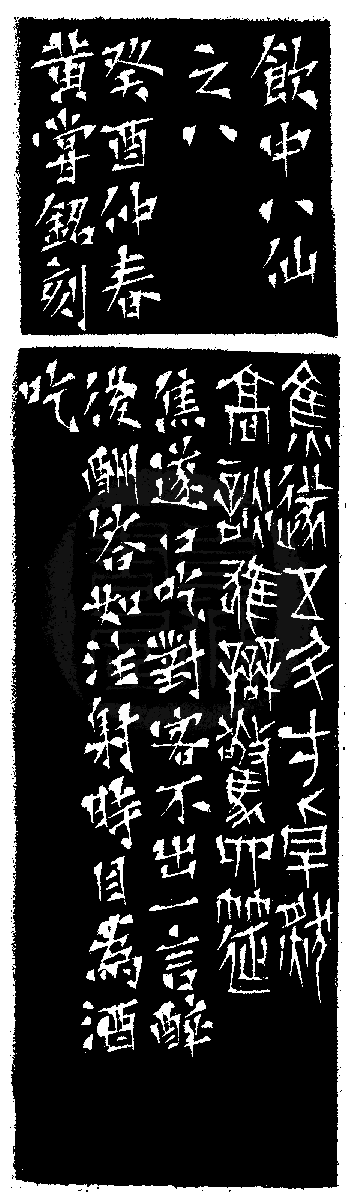 飲中八仙
之八
癸酉仲春
黃嘗銘刻
焦遂五斗方卓然
高談雄辯驚四筵
焦遂口吃對客不出一言醉
後酬答如注射時目為酒
吃